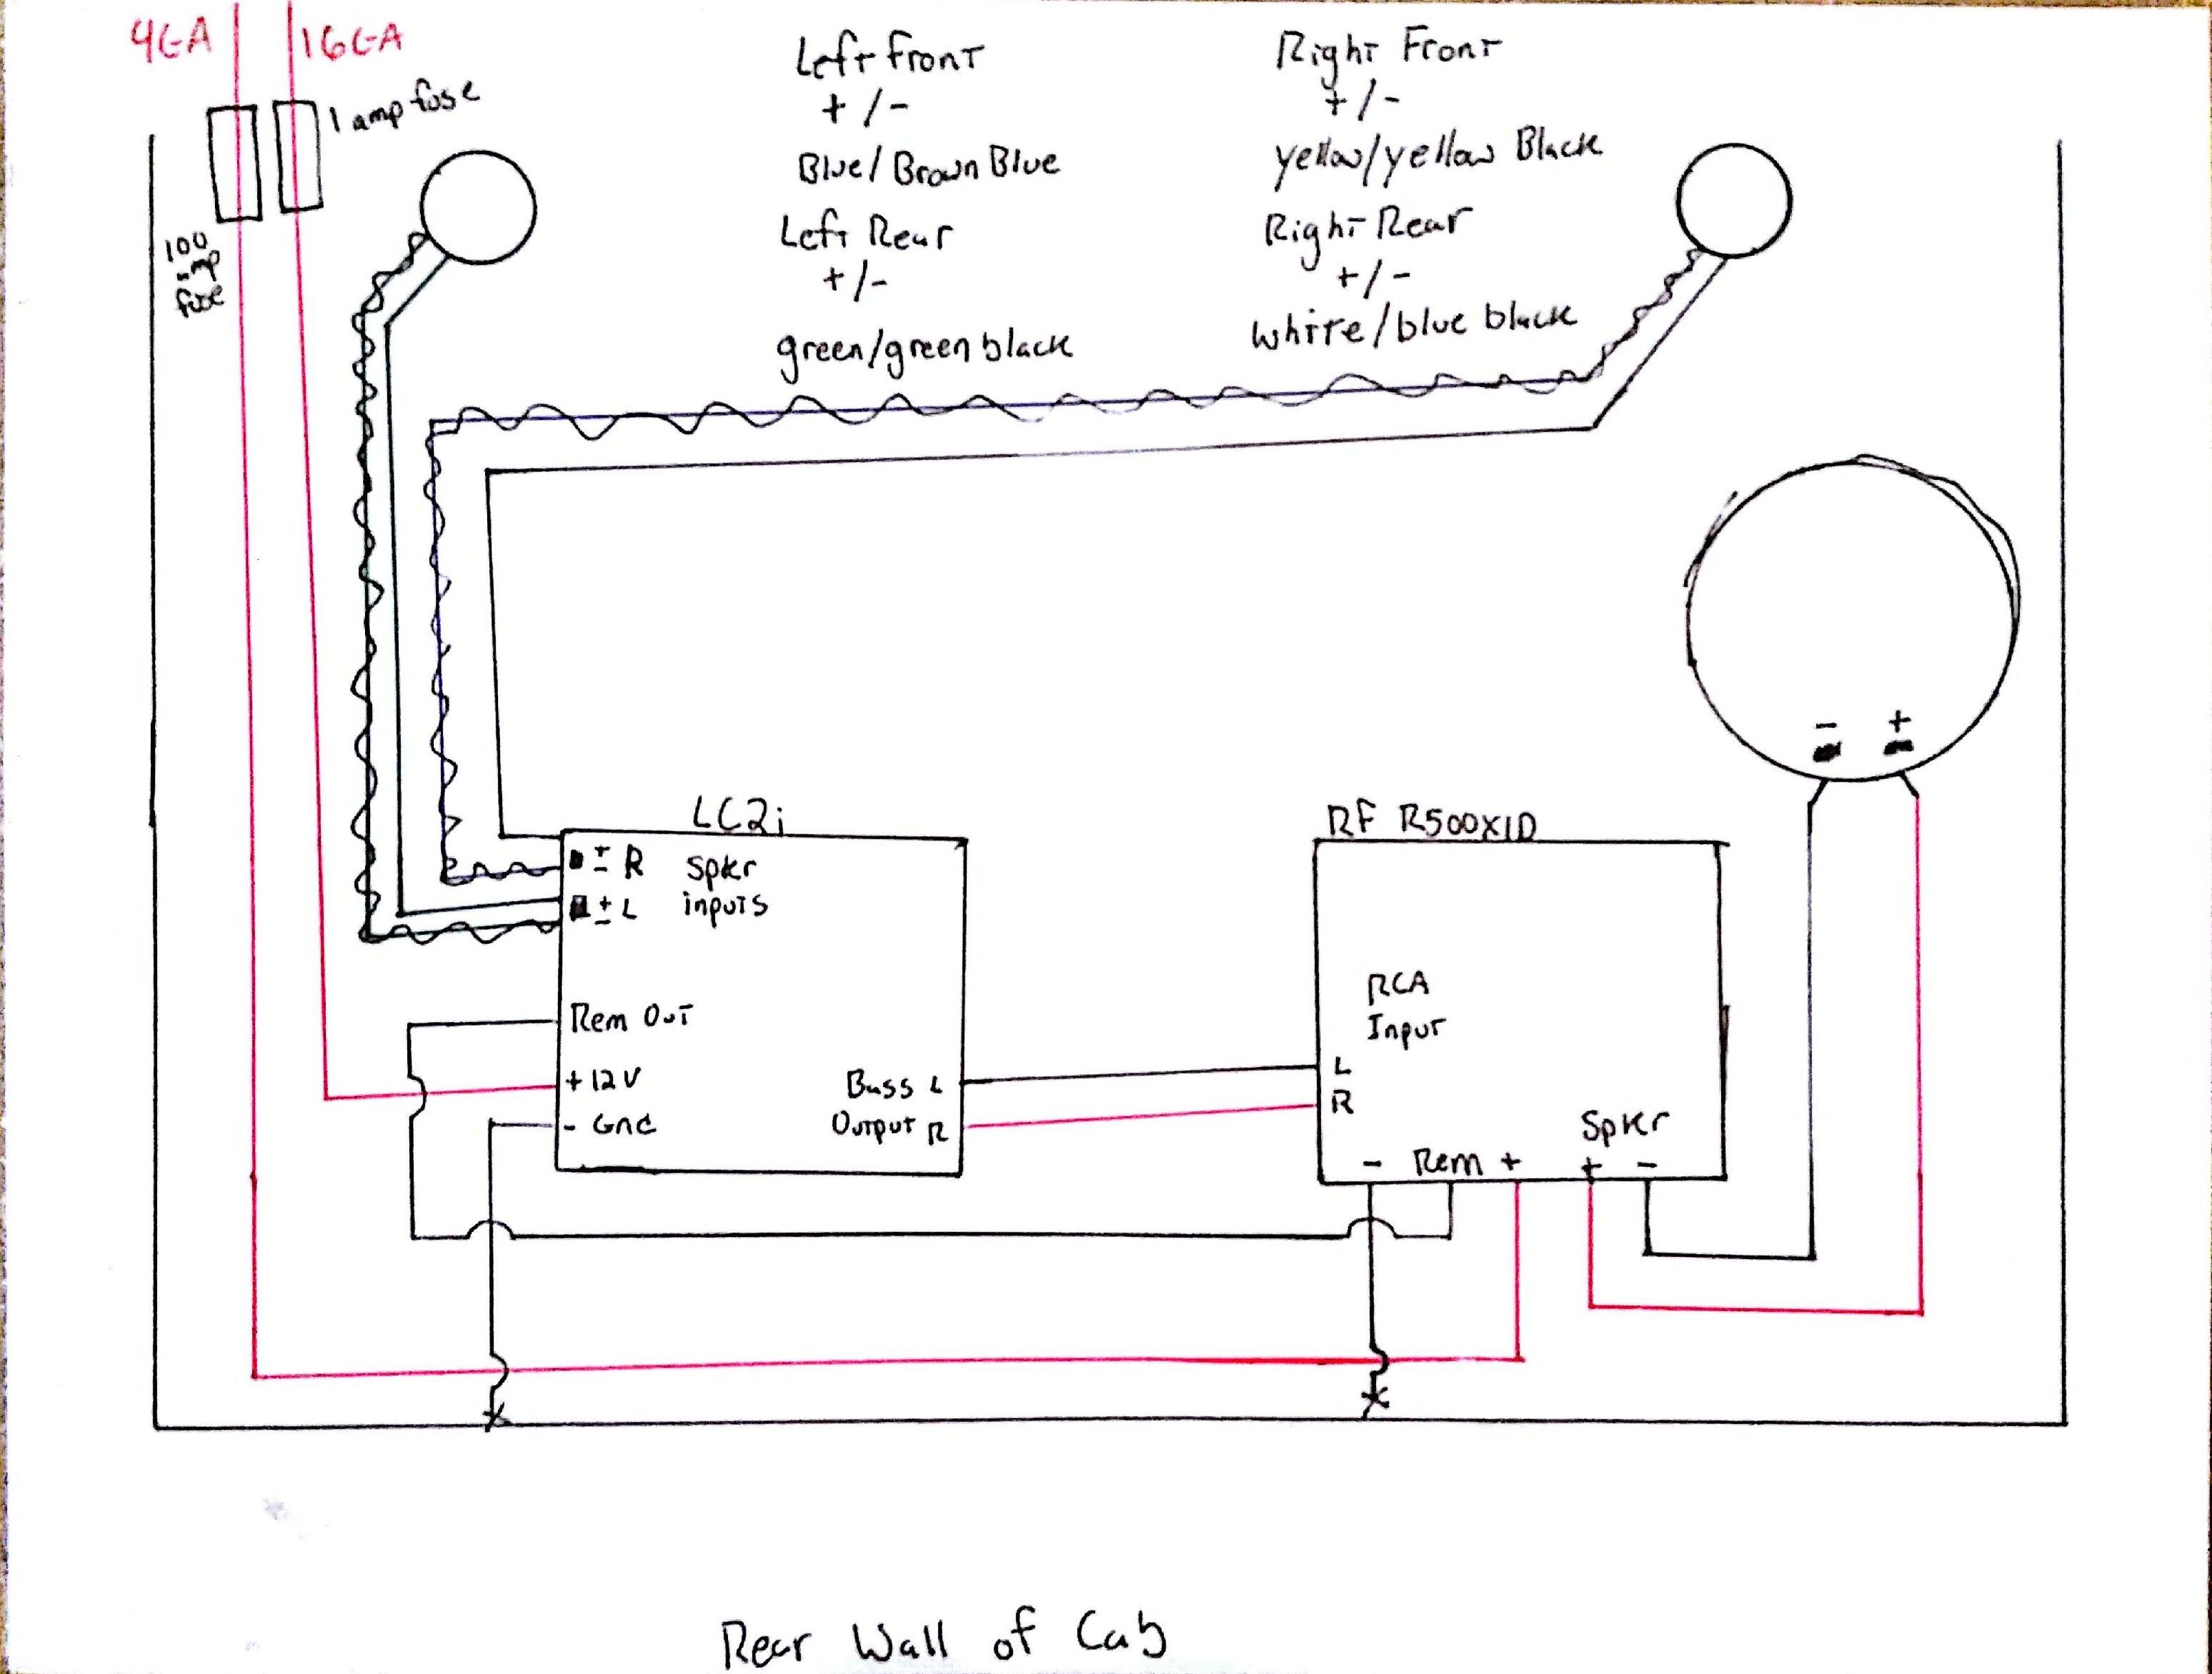 4GA
16GA
1 amp fuse
100
amp
fuse
Left Front
+/-
Blue/Brown Blue
Left Rear
+/-
green/green black
Right Front
+/-
yellow/yellow Black
Right Rear
+/-
white/blue black
- +
LC2i
+
- R Spkr
+
- L inputs
Rem Out
+12V
- Gnd
Bass L
Output R
RF R500X1D
RCA
Input
L
R
Spkr
- Rem + + -
Rear Wall of Cab